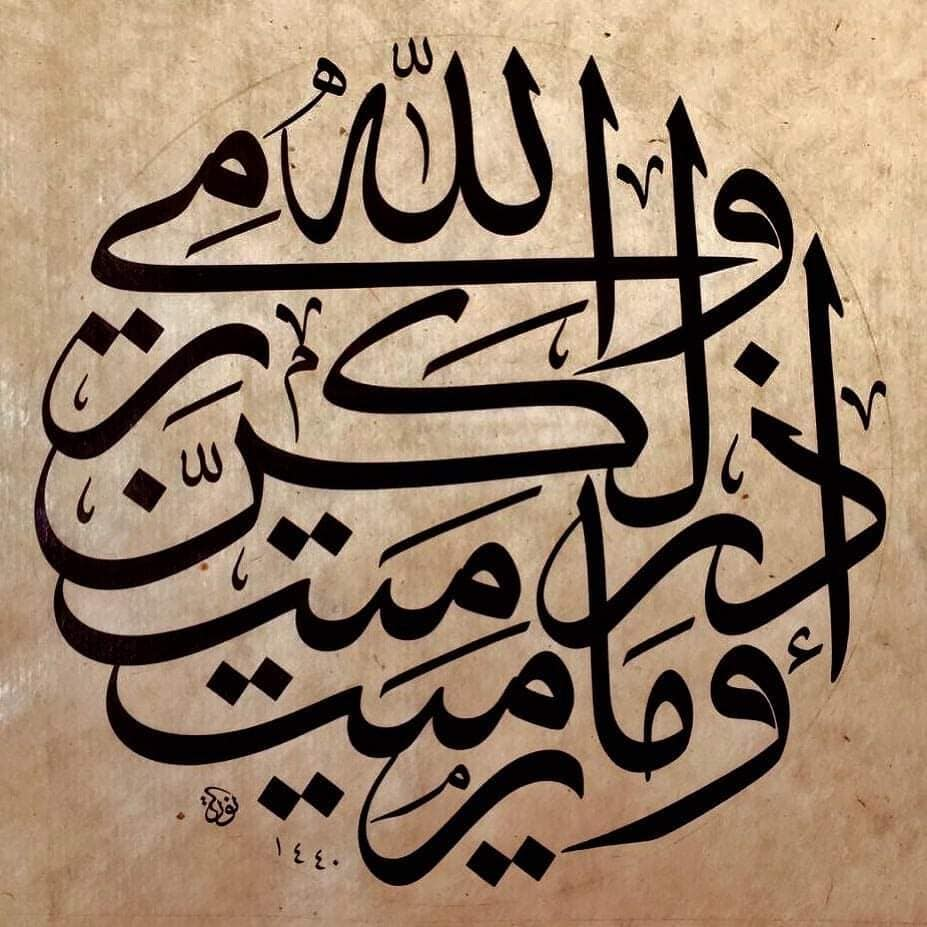 وَمَا رَمَيْتَ إِذْ رَمَيْتَ وَلَٰكِنَّ اللَّهَ رَمَىٰ
١٤٤٠